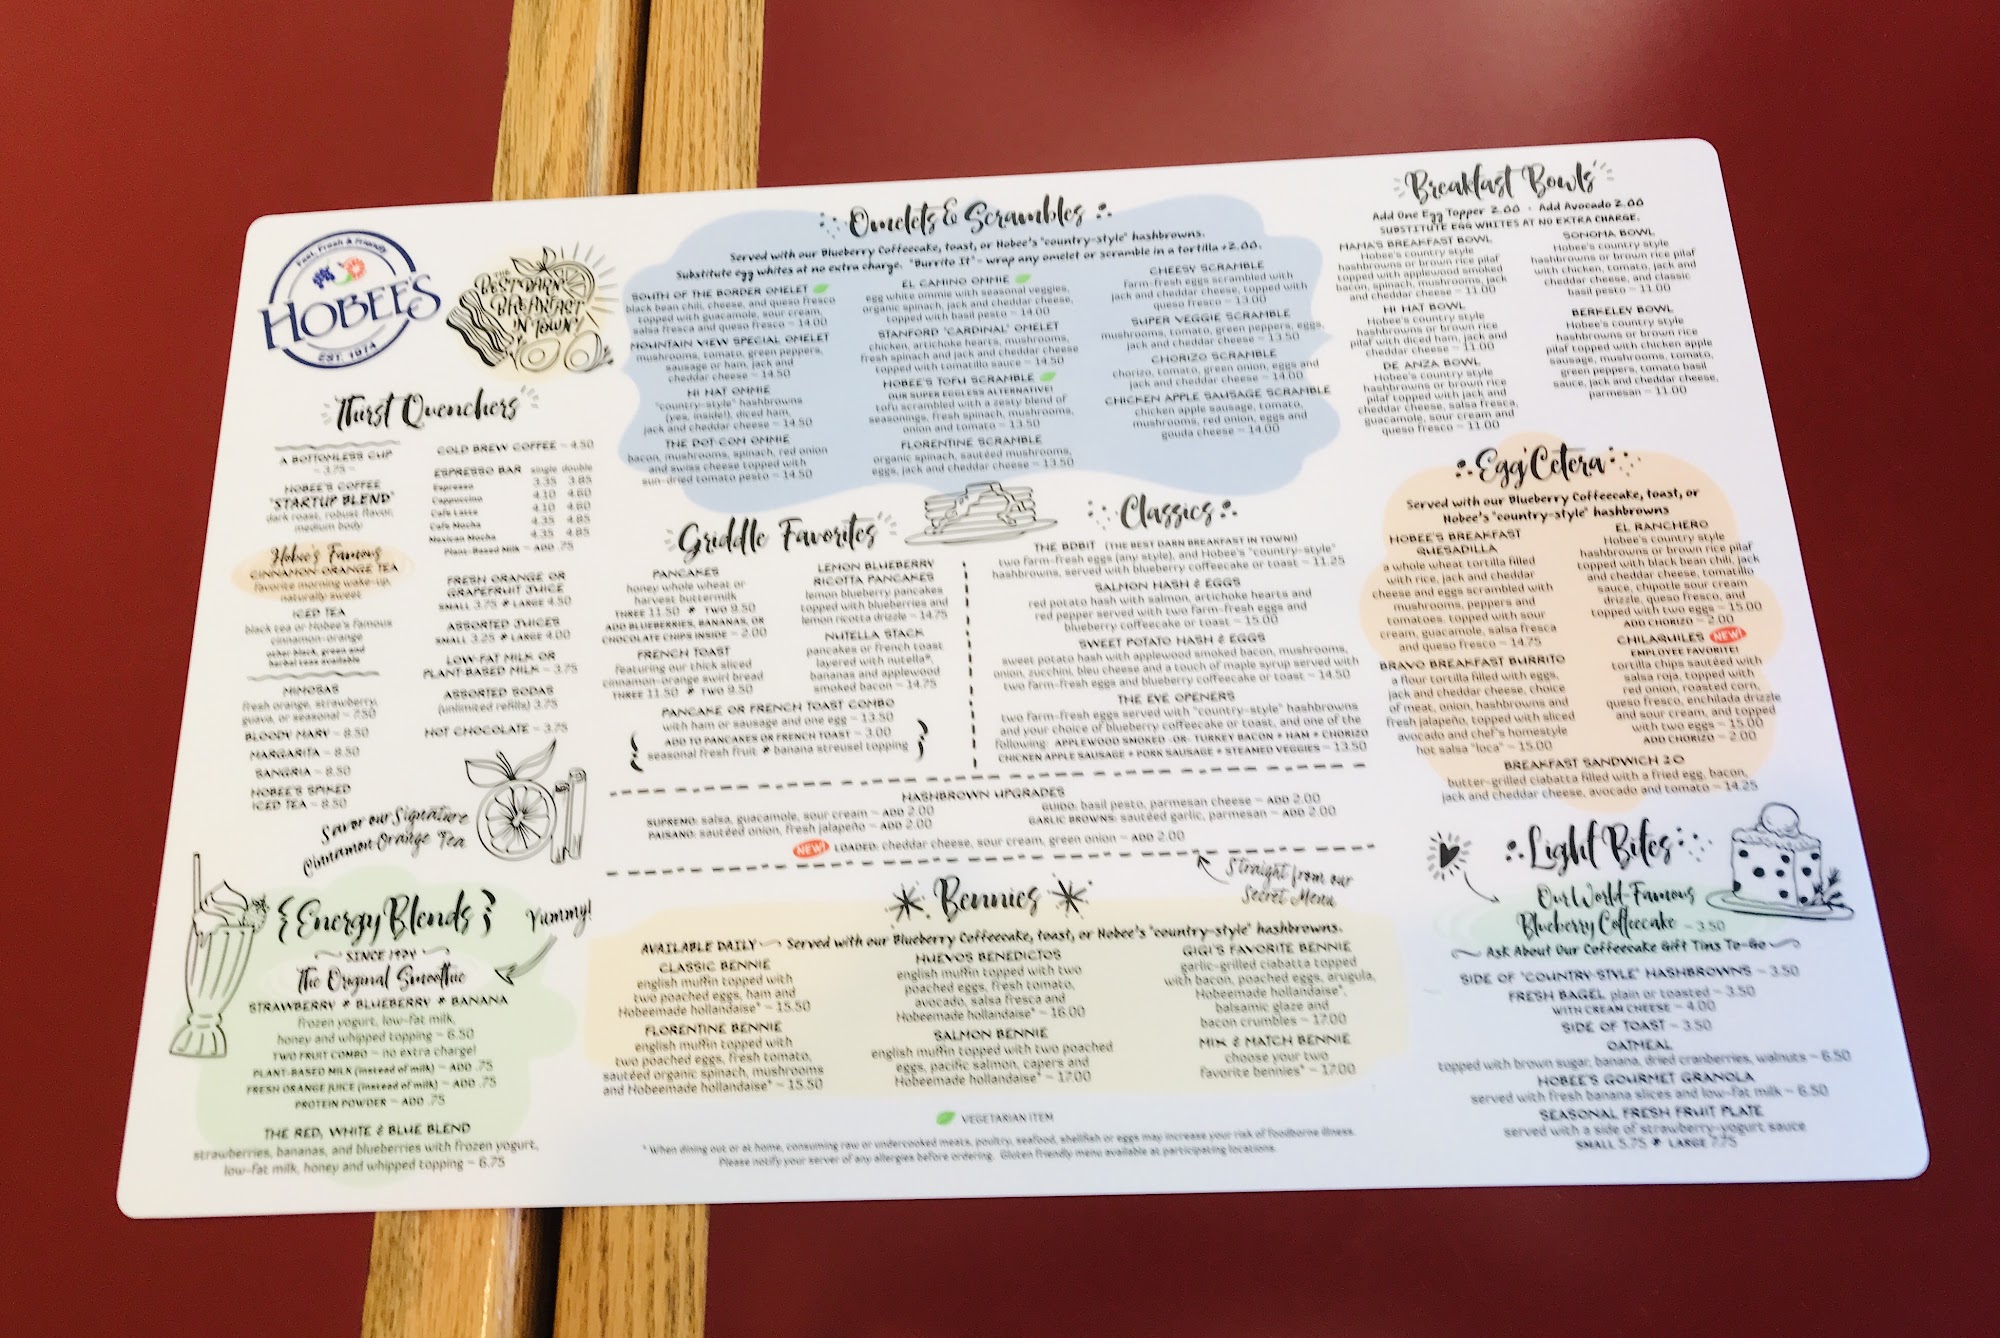 Fast, Fresh & Friendly
HOBEE'S
EST. 1974
THE
BEST DARN
BREAKFAST
IN TOWN!
Thirst Quenchers
A BOTTOMLESS CUP
~ 3.75 ~
HOBEE'S COFFEE
"STARTUP BLEND"
dark roast, robust flavor,
medium body
Hobee's Famous
CINNAMON-ORANGE TEA
favorite morning wake-up,
naturally sweet
ICED TEA
black tea or Hobee's famous
cinnamon-orange
other black, green and
herbal teas available
MIMOSAS
fresh orange, strawberry,
guava, or seasonal ~ 7.50
BLOODY MARY ~ 8.50
MARGARITA ~ 8.50
SANGRIA ~ 8.50
HOBEE'S SPIKED
ICED TEA ~ 8.50
COLD BREW COFFEE ~ 4.50
ESPRESSO BAR single double
Espresso 3.35 3.85
Cappuccino 4.10 4.60
Cafe Latte 4.10 4.60
Cafe Mocha 4.35 4.85
Mexican Mocha 4.35 4.85
Plant-Based Milk ~ ADD .75
FRESH ORANGE OR
GRAPEFRUIT JUICE
SMALL 3.75 * LARGE 4.50
ASSORTED JUICES
SMALL 3.25 * LARGE 4.00
LOW-FAT MILK OR
PLANT-BASED MILK ~ 3.75
ASSORTED SODAS
(unlimited refills) 3.75
HOT CHOCOLATE ~ 3.75
Savor our Signature
Cinnamon Orange Tea
{ Energy Blends }
Yummy!
SINCE 1974
The Original Smoothie
STRAWBERRY * BLUEBERRY * BANANA
frozen yogurt, low-fat milk,
honey and whipped topping ~ 6.50
TWO FRUIT COMBO ~ no extra charge!
PLANT-BASED MILK (instead of milk) ~ ADD .75
FRESH ORANGE JUICE (instead of milk) ~ ADD .75
PROTEIN POWDER ~ ADD .75
THE RED, WHITE & BLUE BLEND
strawberries, bananas, and blueberries with frozen yogurt,
low-fat milk, honey and whipped topping ~ 6.75
Omelets & Scrambles
Served with our Blueberry Coffeecake, toast, or Hobee's "country-style" hashbrowns.
Substitute egg whites at no extra charge. "Burrito It" ~ wrap any omelet or scramble in a tortilla +2.00.
SOUTH OF THE BORDER OMELET
black bean chili, cheese, and queso fresco
topped with guacamole, sour cream,
salsa fresca and queso fresco ~ 14.00
MOUNTAIN VIEW SPECIAL OMELET
mushrooms, tomato, green peppers,
sausage or ham, jack and
cheddar cheese ~ 14.50
HI HAT OMMIE
"country-style" hashbrowns
(yes, inside!), diced ham,
jack and cheddar cheese ~ 14.50
THE DOT-COM OMMIE
bacon, mushrooms, spinach, red onion
and swiss cheese topped with
sun-dried tomato pesto ~ 14.50
EL CAMINO OMMIE
egg white ommie with seasonal veggies,
organic spinach, jack and cheddar cheese,
topped with basil pesto ~ 14.00
STANFORD "CARDINAL" OMELET
chicken, artichoke hearts, mushrooms,
fresh spinach and jack and cheddar cheese
topped with tomatillo sauce ~ 14.50
HOBEE'S TOFU SCRAMBLE
OUR SUPER EGGLESS ALTERNATIVE!
tofu scrambled with a zesty blend of
seasonings, fresh spinach, mushrooms,
onion and tomato ~ 13.50
FLORENTINE SCRAMBLE
organic spinach, sautéed mushrooms,
eggs, jack and cheddar cheese ~ 13.50
CHEESY SCRAMBLE
farm-fresh eggs scrambled with
jack and cheddar cheese, topped with
queso fresco ~ 13.00
SUPER VEGGIE SCRAMBLE
mushrooms, tomato, green peppers, eggs,
jack and cheddar cheese ~ 13.50
CHORIZO SCRAMBLE
chorizo, tomato, green onion, eggs and
jack and cheddar cheese ~ 14.00
CHICKEN APPLE SAUSAGE SCRAMBLE
chicken apple sausage, tomato,
mushrooms, red onion, eggs and
gouda cheese ~ 14.00
Griddle Favorites
PANCAKES
honey whole wheat or
harvest buttermilk
THREE 11.50 * TWO 9.50
ADD BLUEBERRIES, BANANAS, OR
CHOCOLATE CHIPS INSIDE ~ 2.00
FRENCH TOAST
featuring our thick sliced
cinnamon-orange swirl bread
THREE 11.50 * TWO 9.50
LEMON BLUEBERRY
RICOTTA PANCAKES
lemon blueberry pancakes
topped with blueberries and
lemon ricotta drizzle ~ 14.75
NUTELLA STACK
pancakes or french toast
layered with nutella®,
bananas and applewood
smoked bacon ~ 14.75
PANCAKE OR FRENCH TOAST COMBO
with ham or sausage and one egg ~ 13.50
ADD TO PANCAKES OR FRENCH TOAST ~ 3.00
seasonal fresh fruit * banana streusel topping
Classics
THE BDBIT (THE BEST DARN BREAKFAST IN TOWN!)
two farm-fresh eggs (any style), and Hobee's "country-style"
hashbrowns, served with blueberry coffeecake or toast ~ 11.25
SALMON HASH & EGGS
red potato hash with salmon, artichoke hearts and
red pepper served with two farm-fresh eggs and
blueberry coffeecake or toast ~ 15.00
SWEET POTATO HASH & EGGS
sweet potato hash with applewood smoked bacon, mushrooms,
onion, zucchini, bleu cheese and a touch of maple syrup served with
two farm-fresh eggs and blueberry coffeecake or toast ~ 14.50
THE EYE OPENERS
two farm-fresh eggs served with "country-style" hashbrowns
and your choice of blueberry coffeecake or toast, and one of the
following: APPLEWOOD SMOKED -OR- TURKEY BACON + HAM + CHORIZO
CHICKEN APPLE SAUSAGE + PORK SAUSAGE + STEAMED VEGGIES ~ 13.50
HASHBROWN UPGRADES
SUPREMO: salsa, guacamole, sour cream ~ ADD 2.00
PAISANO: sautéed onion, fresh jalapeño ~ ADD 2.00
GUIDO: basil pesto, parmesan cheese ~ ADD 2.00
GARLIC BROWNS: sautéed garlic, parmesan ~ ADD 2.00
NEW! LOADED: cheddar cheese, sour cream, green onion ~ ADD 2.00
Straight from our
Secret Menu
Bennies
AVAILABLE DAILY ~ Served with our Blueberry Coffeecake, toast, or Hobee's "country-style" hashbrowns.
CLASSIC BENNIE
english muffin topped with
two poached eggs, ham and
Hobeemade hollandaise* ~ 15.50
FLORENTINE BENNIE
english muffin topped with
two poached eggs, fresh tomato,
sautéed organic spinach, mushrooms
and Hobeemade hollandaise* ~ 15.50
HUEVOS BENEDICTOS
english muffin topped with two
poached eggs, fresh tomato,
avocado, salsa fresca and
Hobeemade hollandaise* ~ 16.00
SALMON BENNIE
english muffin topped with two poached
eggs, pacific salmon, capers and
Hobeemade hollandaise* ~ 17.00
GIGI'S FAVORITE BENNIE
garlic-grilled ciabatta topped
with bacon, poached eggs, arugula,
Hobeemade hollandaise*,
balsamic glaze and
bacon crumbles ~ 17.00
MIX & MATCH BENNIE
choose your two
favorite bennies* ~ 17.00
VEGETARIAN ITEM
* When dining out or at home, consuming raw or undercooked meats, poultry, seafood, shellfish or eggs may increase your risk of foodborne illness.
Please notify your server of any allergies before ordering. Gluten friendly menu available at participating locations.
Breakfast Bowls
Add One Egg Topper 2.00 · Add Avocado 2.00
SUBSTITUTE EGG WHITES AT NO EXTRA CHARGE.
MAMA'S BREAKFAST BOWL
Hobee's country style
hashbrowns or brown rice pilaf
topped with applewood smoked
bacon, spinach, mushrooms, jack
and cheddar cheese ~ 11.00
HI HAT BOWL
Hobee's country style
hashbrowns or brown rice
pilaf with diced ham, jack and
cheddar cheese ~ 11.00
DE ANZA BOWL
Hobee's country style
hashbrowns or brown rice
pilaf topped with jack and
cheddar cheese, salsa fresca,
guacamole, sour cream and
queso fresco ~ 11.00
SONOMA BOWL
Hobee's country style
hashbrowns or brown rice pilaf
with chicken, tomato, jack and
cheddar cheese, and classic
basil pesto ~ 11.00
BERKELEY BOWL
Hobee's country style
hashbrowns or brown rice
pilaf topped with chicken apple
sausage, mushrooms, tomato,
green peppers, tomato basil
sauce, jack and cheddar cheese,
parmesan ~ 11.00
Egg'Cetera
Served with our Blueberry Coffeecake, toast, or
Hobee's "country-style" hashbrowns
HOBEE'S BREAKFAST
QUESADILLA
a whole wheat tortilla filled
with rice, jack and cheddar
cheese and eggs scrambled with
mushrooms, peppers and
tomatoes, topped with sour
cream, guacamole, salsa fresca
and queso fresco ~ 14.75
BRAVO BREAKFAST BURRITO
a flour tortilla filled with eggs,
jack and cheddar cheese, choice
of meat, onion, hashbrowns and
fresh jalapeño, topped with sliced
avocado and chef's homestyle
hot salsa "loca" ~ 15.00
EL RANCHERO
Hobee's country style
hashbrowns or brown rice pilaf
topped with black bean chili, jack
and cheddar cheese, tomatillo
sauce, chipotle sour cream
drizzle, queso fresco, and
topped with two eggs ~ 15.00
ADD CHORIZO ~ 2.00
CHILAQUILES NEW!
EMPLOYEE FAVORITE!
tortilla chips sautéed with
salsa roja, topped with
red onion, roasted corn,
queso fresco, enchilada drizzle
and sour cream, and topped
with two eggs ~ 15.00
ADD CHORIZO ~ 2.00
BREAKFAST SANDWICH 2.0
butter-grilled ciabatta filled with a fried egg, bacon,
jack and cheddar cheese, avocado and tomato ~ 14.25
Light Bites
Our World-Famous
Blueberry Coffeecake ~ 3.50
Ask About Our Coffeecake Gift Tins To-Go
SIDE OF "COUNTRY-STYLE" HASHBROWNS ~ 3.50
FRESH BAGEL plain or toasted ~ 3.50
WITH CREAM CHEESE ~ 4.00
SIDE OF TOAST ~ 3.50
OATMEAL
topped with brown sugar, banana, dried cranberries, walnuts ~ 6.50
HOBEE'S GOURMET GRANOLA
served with fresh banana slices and low-fat milk ~ 6.50
SEASONAL FRESH FRUIT PLATE
served with a side of strawberry-yogurt sauce
SMALL 5.75 * LARGE 7.75